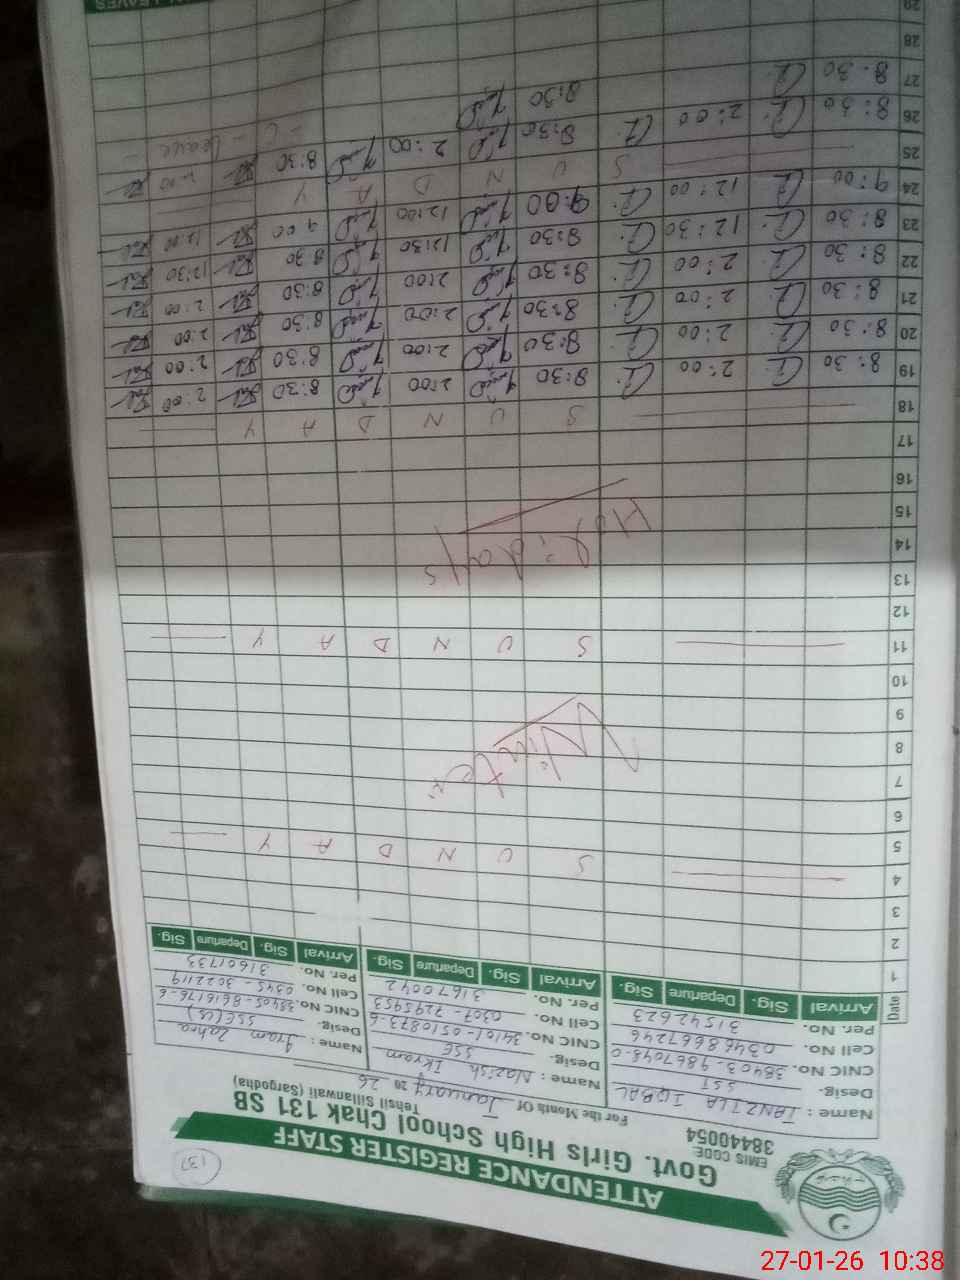 137
ATTENDANCE REGISTER STAFF
Govt. Girls High School Chak 131 SB
EMIS CODE: 38440054
Tehsil Sillanwali (Sargodha)
For the Month Of January 20 26
Name : TANZILA IQBAL
Desig. SST
CNIC No. 38403-9867048-0
Cell No. 03468667246
Per. No. 31542623
Name : Nazish Ikram
Desig. SSE
CNIC No. 34101-0510873-6
Cell No. 0307-7295953
Per. No. 31670042
Name : Iram Zahra
Desig. SSE(
CNIC No. 38405-8616176-6
Cell No. 0345-3022119
Per. No. 31601733
Date Arrival Sig. Departure Sig. Arrival Sig. Departure Sig. Arrival Sig. Departure Sig.
1
2
3
4 S U N D A Y
5
6
7 Winter
8
9
10
11 S U N D A Y
12
13
14 Holidays
15
16
17
18 S U N D A Y
19 8:30 2:00 8:30 2:00 8:30 2:00
20 8:30 2:00 8:30 2:00 8:30 2:00
21 8:30 2:00 8:30 2:00 8:30 2:00
22 8:30 2:00 8:30 2:00 8:30 2:00
23 8:30 12:30 8:30 12:30 8:30 12:30
24 9:00 12:00 9:00 12:00 9:00 12:00
25 S U N D A Y
26 8:30 2:00 8:30 2:00 8:30 2:00
27 8:30 8:30 - C - Leave -
28
29
LEAVES
27-01-26 10:38